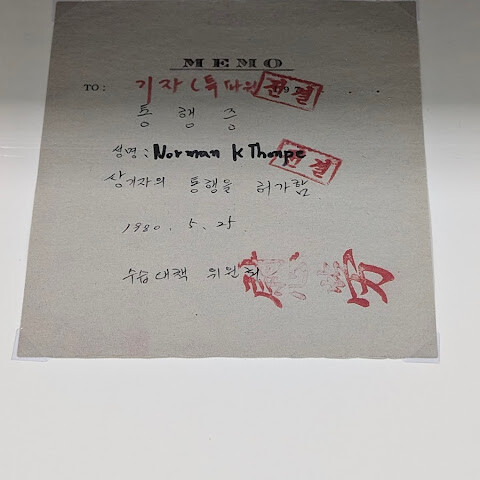 MEMO
TO: 기자(특파원
전결
통행증
성명: Norman K Thorpe
전결
상기자의 통행을 허가함
1980. 5. 25
수습대책 위원회